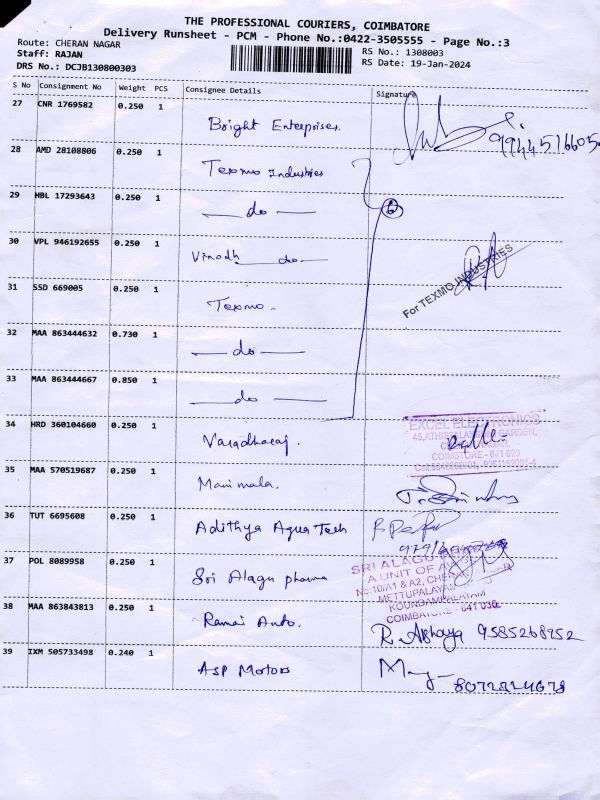 THE PROFESSIONAL COURIERS, COIMBATORE
Delivery Runsheet - PCM - Phone No.:0422-3505555 - Page No.:3
Route: CHERAN NAGAR
RS No.: 1308003
Staff: RAJAN
RS Date: 19-Jan-2024
DRS No.: DCJB130800303
S No Consignment No Weight PCS Consignee Details Signature
27 CNR 1769582 0.250 1 Bright Enterprises. 9944516605
28 AMD 28108806 0.250 1 Texmo Industries
29 HBL 17293643 0.250 1 — do — 6
30 VPL 946192655 0.250 1 Vinodh do
For TEXMO INDUSTRIES
31 SSD 669005 0.250 1 Texmo.
32 MAA 863444632 0.730 1 — do —
33 MAA 863444667 0.850 1 — do —
34 HRD 360104660 0.250 1 Varadharaj.
EXCEL ELECTRONICS
COIMSTORE - 641 020
35 MAA 570519687 0.250 1 Manimala.
36 TUT 6695608 0.250 1 Adithya Aqua Tech
37 POL 8089958 0.250 1 Sri Alagu pharma
SRI ALAGU
A UNIT OF
No:10/A1 & A2, CHERAN NAGAR
METTUPALAYAM
KOUNDAMPALAYAM
COIMBATORE - 641 030
38 MAA 863843813 0.250 1 Ramai Auto. R. Abhaya 9585268952
39 IXM 505733498 0.240 1 ASP Motors 8072824678